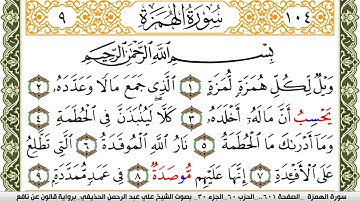 ١٠٤ سُورَةُ الْهُمَزَةِ ٩
بِسْمِ اللَّهِ الرَّحْمَٰنِ الرَّحِيمِ
وَيْلٌ لِّكُلِّ هُمَزَةٍ لُّمَزَةٍ ١ الَّذِي جَمَعَ مَالًا وَعَدَّدَهُ ٢
يَحْسِبُ أَنَّ مَالَهُ أَخْلَدَهُ ٣ كَلَّا لَيُنۢبَذَنَّ فِي الْحُطَمَةِ ٤
وَمَا أَدْرَىٰكَ مَا الْحُطَمَةُ ٥ نَارُ اللَّهِ الْمُوقَدَةُ ٦ الَّتِي تَطَّلِعُ
عَلَى الْأَفْـِٕدَةِ ٧ إِنَّهَا عَلَيْهِم مُّوصَدَةٌ ٨ فِي عَمَدٍ مُّمَدَّدَةٍ ٩
سورة الهمزة . الصفحة ٦٠١ .. الحزب ٦٠ . الجزء ٣٠ . بصوت الشيخ علي عبد الرحمن الحذيفي . برواية قالون عن نافع